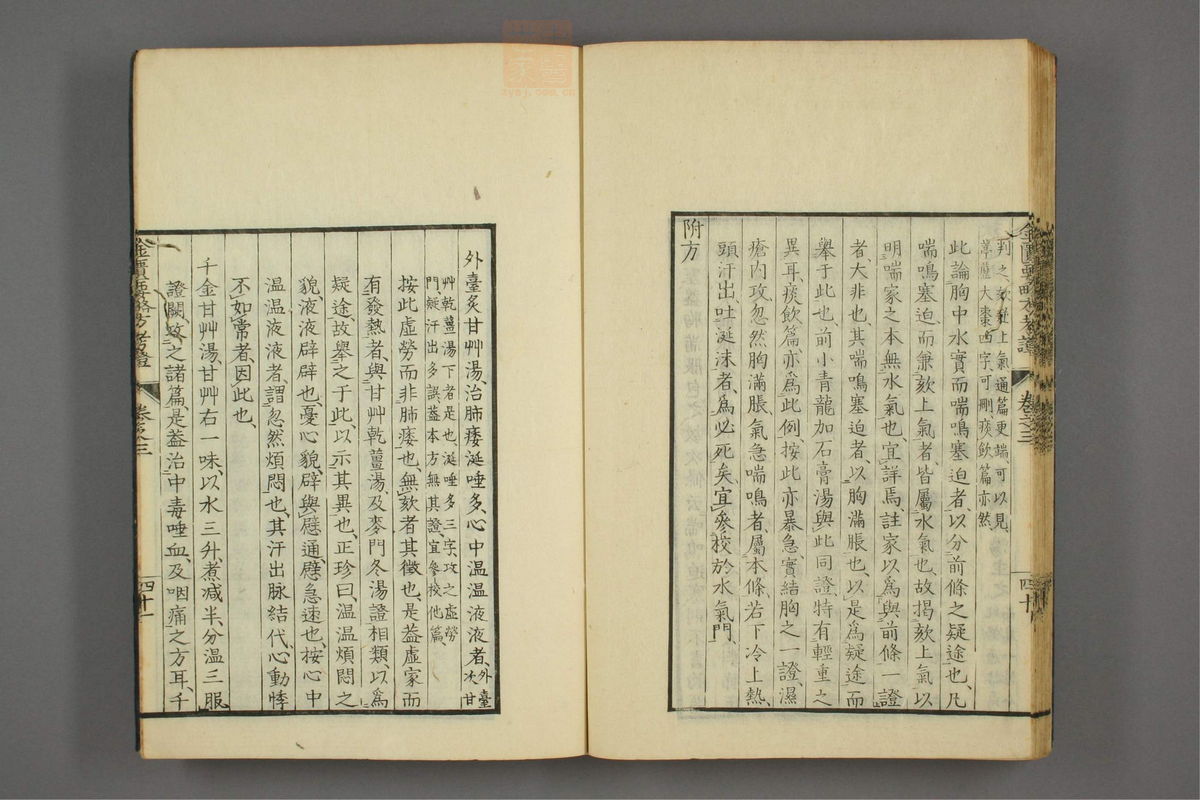 判之欬逆上氣通篇更端可以見
葶藶大棗四字可刪痰飲篇亦然
此論胸中水實而喘鳴塞迫者、以分前條之疑途也、凡
喘鳴塞迫而兼欬上氣者皆屬水氣也、故揭欬上氣以
明喘家之本無水氣也、宜詳焉、註家以爲與前條一證
者、大非也、其喘鳴塞迫者、以胸滿脹也、以是爲疑途而
擧于此也、前小青龍加石膏湯與此同證、特有輕重之
異耳、痰飲篇亦爲此例、按此亦暴急實結胸之一證、濕
瘡內攻、忽然胸滿脹、氣急喘鳴者、屬本條、若下冷上熱、
頭汗出、吐涎沫者、爲必死矣、宜參校於水氣門、
附方
外臺炙甘艸湯、治肺痿涎唾多、心中温温液液者、外臺次甘
艸乾薑湯下者是也、涎唾多三字、攷之虛勞
門、疑汗出多誤、蓋本方無其證、宜參校他篇、
按此虛勞而非肺痿也、無欬者其徵也、是蓋虛家而
有發熱者、與甘艸乾薑湯、及麥門冬湯證相類、以爲
疑途、故擧之于此、以示其異也、正珍曰、温温煩悶之
貌、液液辟辟也、憂心貌、辟與躄通、躄急速也、按心中
温温液液者、謂忽然煩悶也、其汗出脉結代、心動悸
不如常者、因此也、
千金甘艸湯、甘艸右一味、以水三升、煮減半、分温三服
證闕、攷之諸篇、是蓋治中毒唾血、及咽痛之方耳、千
金匱要略方考證
卷之三
四十一